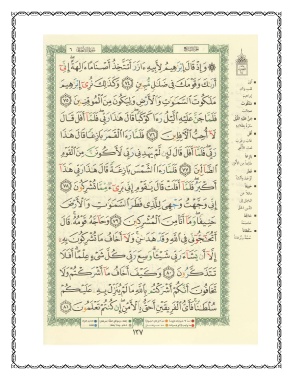 وَإِذْ قَالَ إِبْرَٰهِيمُ لِأَبِيهِ ءَازَرَ أَتَتَّخِذُ أَصْنَامًا ءَالِهَةً إِنِّىٓ
أَرَىٰكَ وَقَوْمَكَ فِى ضَلَٰلٍ مُّبِينٍ ٧٤ وَكَذَٰلِكَ نُرِىٓ إِبْرَٰهِيمَ
مَلَكُوتَ ٱلسَّمَٰوَٰتِ وَٱلْأَرْضِ وَلِيَكُونَ مِنَ ٱلْمُوقِنِينَ ٧٥
فَلَمَّا جَنَّ عَلَيْهِ ٱلَّيْلُ رَءَا كَوْكَبًا قَالَ هَٰذَا رَبِّى فَلَمَّآ أَفَلَ قَالَ
لَآ أُحِبُّ ٱلْءَافِلِينَ ٧٦ فَلَمَّا رَءَا ٱلْقَمَرَ بَازِغًا قَالَ هَٰذَا
رَبِّى فَلَمَّآ أَفَلَ قَالَ لَئِن لَّمْ يَهْدِنِى رَبِّى لَأَكُونَنَّ مِنَ ٱلْقَوْمِ
ٱلضَّآلِّينَ ٧٧ فَلَمَّا رَءَا ٱلشَّمْسَ بَازِغَةً قَالَ هَٰذَا رَبِّى هَٰذَآ
أَكْبَرُ فَلَمَّآ أَفَلَتْ قَالَ يَٰقَوْمِ إِنِّى بَرِىٓءٌ مِّمَّا تُشْرِكُونَ ٧٨
إِنِّى وَجَّهْتُ وَجْهِىَ لِلَّذِى فَطَرَ ٱلسَّمَٰوَٰتِ وَٱلْأَرْضَ
حَنِيفًا وَمَآ أَنَا۠ مِنَ ٱلْمُشْرِكِينَ ٧٩ وَحَآجَّهُۥ قَوْمُهُۥ قَالَ
أَتُحَٰٓجُّوٓنِّى فِى ٱللَّهِ وَقَدْ هَدَىٰنِ وَلَآ أَخَافُ مَا تُشْرِكُونَ بِهِۦٓ
إِلَّآ أَن يَشَآءَ رَبِّى شَيْـًٔا وَسِعَ رَبِّى كُلَّ شَىْءٍ عِلْمًا أَفَلَا
تَتَذَكَّرُونَ ٨٠ وَكَيْفَ أَخَافُ مَآ أَشْرَكْتُمْ وَلَا
تَخَافُونَ أَنَّكُمْ أَشْرَكْتُم بِٱللَّهِ مَا لَمْ يُنَزِّلْ بِهِۦ عَلَيْكُمْ
سُلْطَٰنًا فَأَىُّ ٱلْفَرِيقَيْنِ أَحَقُّ بِٱلْأَمْنِ إِن كُنتُمْ تَعْلَمُونَ ٨١
١٣٧